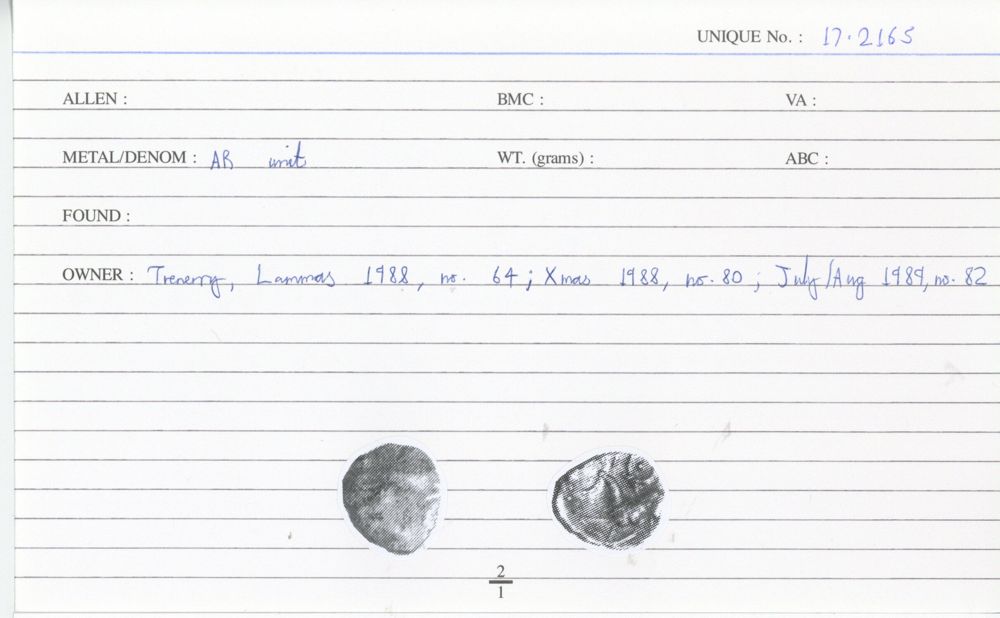 UNIQUE No. : 17.2165
ALLEN : BMC : VA :
METAL/DENOM : AR unit WT. (grams) : ABC :
FOUND :
OWNER : Trenerry, Lammas 1988, no. 64; Xmas 1988, no. 80; July/Aug 1989, no. 82
2
1